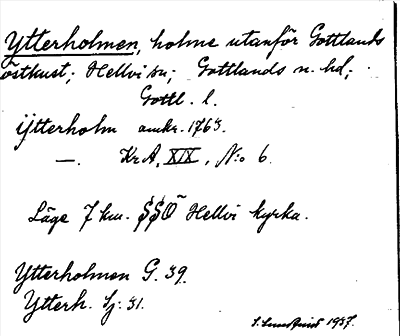 Ytterholmen, holme utanför Gottlands
östkust; Hellvi sn; Gottlands n. hd;
Gottl. l.
ijtterholm omkr. 1763.
—. Kr A, XIX, N:o 6.
Läge 7 km. SSO Hellvi kyrka.
Ytterholmen G. 39.
Ytterh. Sj: 31.
S. Lundquist 1937.